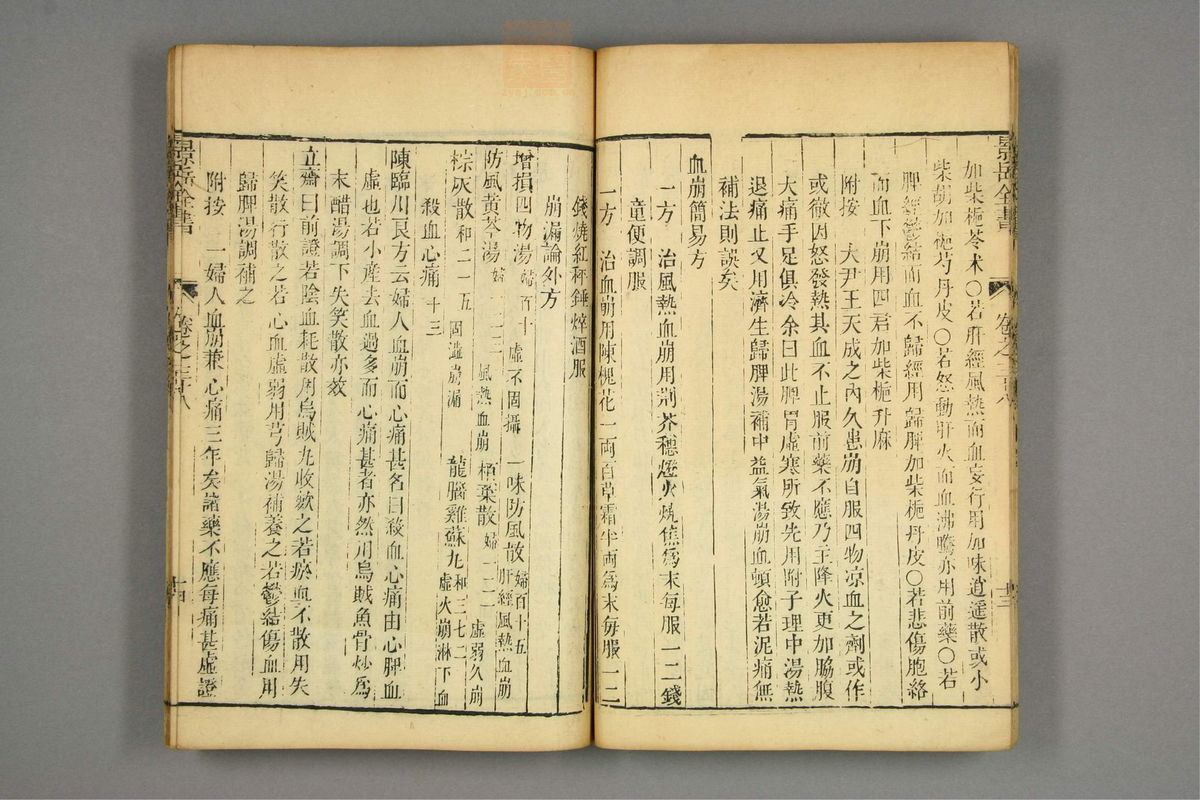 景岳全書
卷之三十八
十三
加柴梔苓术○若肝經風熱而血妄行用加味逍遥散或小
柴胡加梔芍丹皮○若怒動肝火而血沸騰亦用前藥○若
脾經鬱結而血不歸經用歸脾加柴梔丹皮○若悲傷胞絡
而血下崩用四君加柴梔升麻
附按 大尹王天成之内久患崩自服四物凉血之劑或作
或徹因怒發熱其血不止服前藥不應乃主降火更加脇腹
大痛手足俱冷余曰此脾胃虛寒所致先用附子理中湯熱
退痛止又用濟生歸脾湯補中益氣湯崩血頓愈若泥痛無
補法則誤矣
血崩簡易方
一方 治風熱血崩用荆芥穗燈火燒焦爲末每服一二錢
童便調服
一方 治血崩用陳槐花一両百草霜半両爲末毎服一二
錢燒紅秤錘焠酒服
崩漏論外方
增損四物湯 婦百十 虛不固攝 一味防風散 婦百十五 肝經風熱血崩
防風黄芩湯 婦一二三 風熱血崩 栢葉散 婦一二二 虛弱久崩
棕灰散 和二一五 固澁崩漏 龍腦雞蘇丸 和三七二 虛火崩淋下血
殺血心痛 十三
陳臨川良方云婦人血崩而心痛甚名曰殺血心痛由心脾血
虛也若小產去血過多而心痛甚者亦然用烏賊魚骨炒爲
末醋湯調下失笑散亦效
立齋曰前證若陰血耗散用烏賊丸收歛之若瘀血不散用失
笑散行散之若心血虛弱用芎歸湯補養之若鬱結傷血用
歸脾湯調補之
附按 一婦人血崩兼心痛三年矣諸藥不應每痛甚虛證
景岳全書
卷之三十八
十四